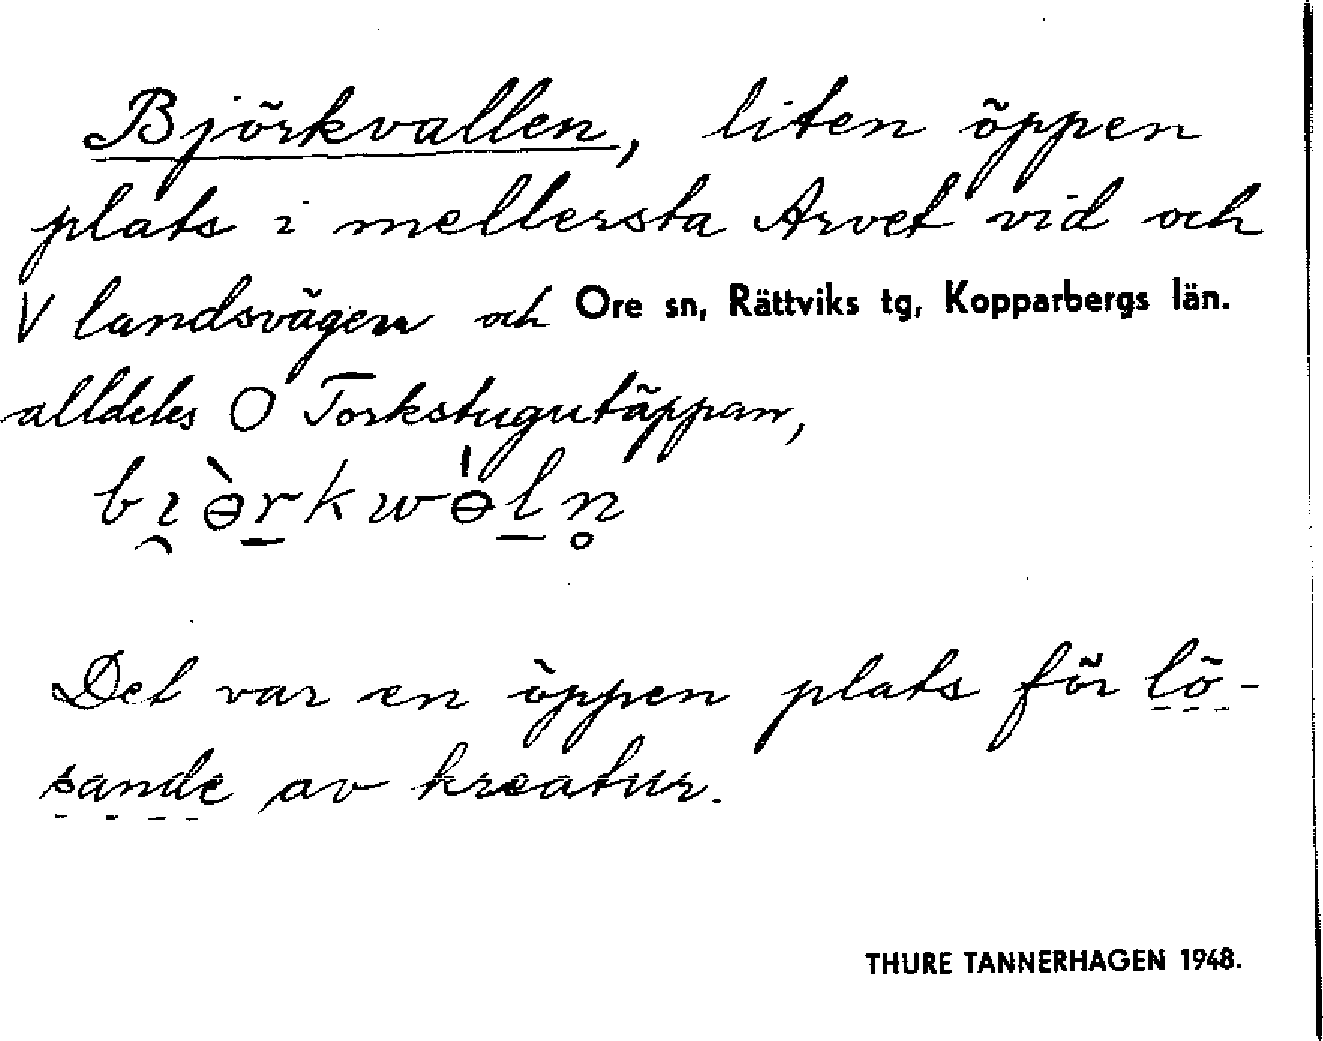 Björkvallen, liten öppen
plats i mellersta Arvet vid och
V landsvägen och Ore sn, Rättviks tg, Kopparbergs län.
alldeles O Torkstugutäppan,
bı̯ə̀r̠kwə̍l̠n̥
Det var en öppen plats för lö-
sande av kreatur.
THURE TANNERHAGEN 1948.